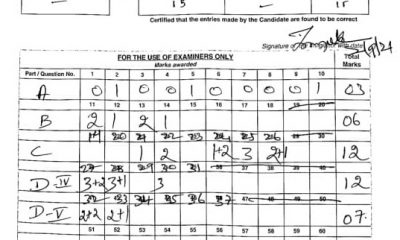 15
Certified that the entries made by the Candidate are found to be correct
Signature of
with date
FOR THE USE OF EXAMINERS ONLY
Marks awarded
Part / Question No. 1 2 3 4 5 6 7 8 9 10 Total Marks
A 0 1 0 0 1 0 0 0 1 03
11 12 13 14 15 16 17 18 19 20
B 2 1 2 1 06
19 20 21 22 23 24 25 26 29 30
C 1 2 1+2 3 2+1 12
27 28 29 30 31 36 37 38 39 40
D-IV 3+2 3+1 3 12
32 33 34 35 36 37 47 48 49 50
D-V 2+2 2+1 07
51 52 53 54 55 56 57 58 59 60